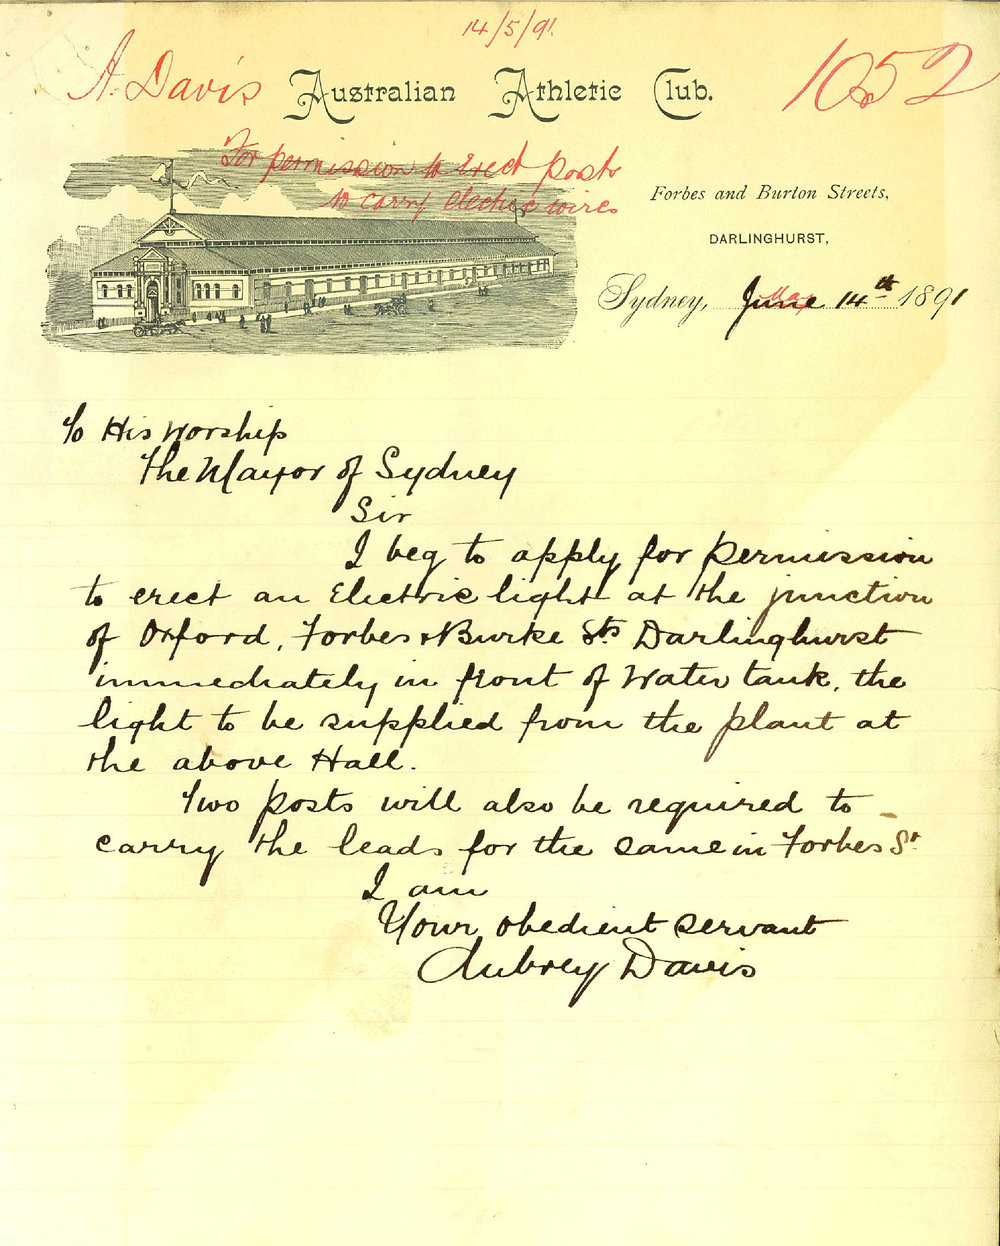 14/5/91.
A. Davis
Australian Athletic Club.
1052
For permission to Erect posts
to carry electric wires
Forbes and Burton Streets,
DARLINGHURST,
Sydney, June May 14th 1891
To His Worship
The Mayor of Sydney
Sir
I beg to apply for permission
to erect an Electric light at the junction
of Oxford, Forbes & Burke Sts Darlinghurst
immediately in front of Water tank, the
light to be supplied from the plant at
the above Hall.
Two posts will also be required to
carry the leads for the same in Forbes St
I am
Your obedient servant
Aubrey Davis